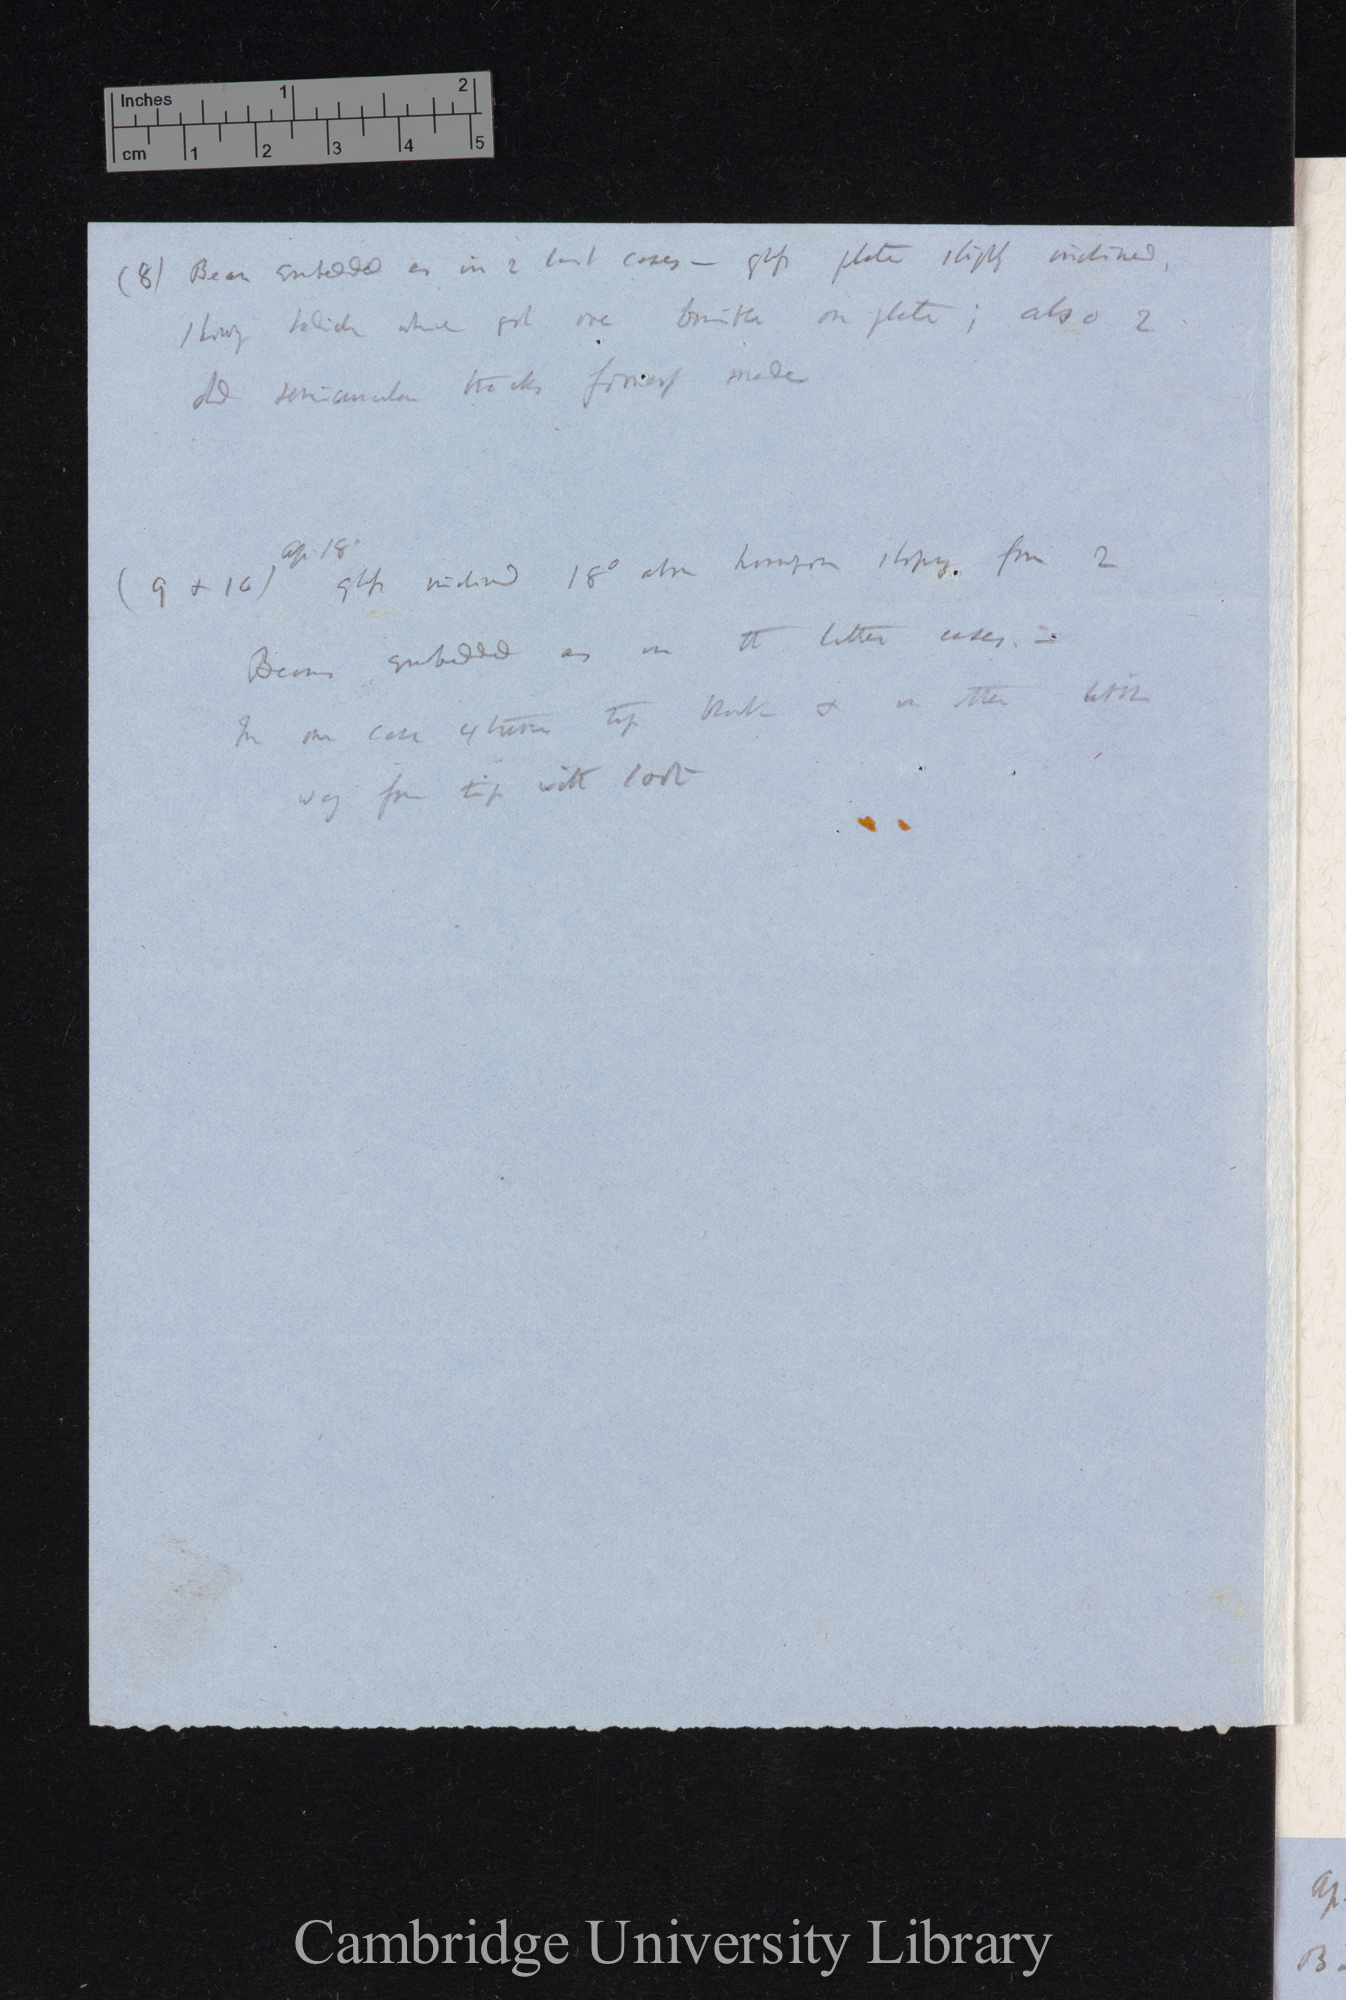 Inches 1 2
cm 1 2 3 4 5
(8) Bean embedded as in 2 last cases — glass plate slightly inclined,
showing which where got over on plate; also 2
old semicircular tracks formerly made
Ap. 18°
(9 & 10) glass inclined 18° above horizon sloping from 2
Beans embedded as in the latter cases. =
In one case extreme tip & in other little
way from tip with
Cambridge University Library
Ap.
B